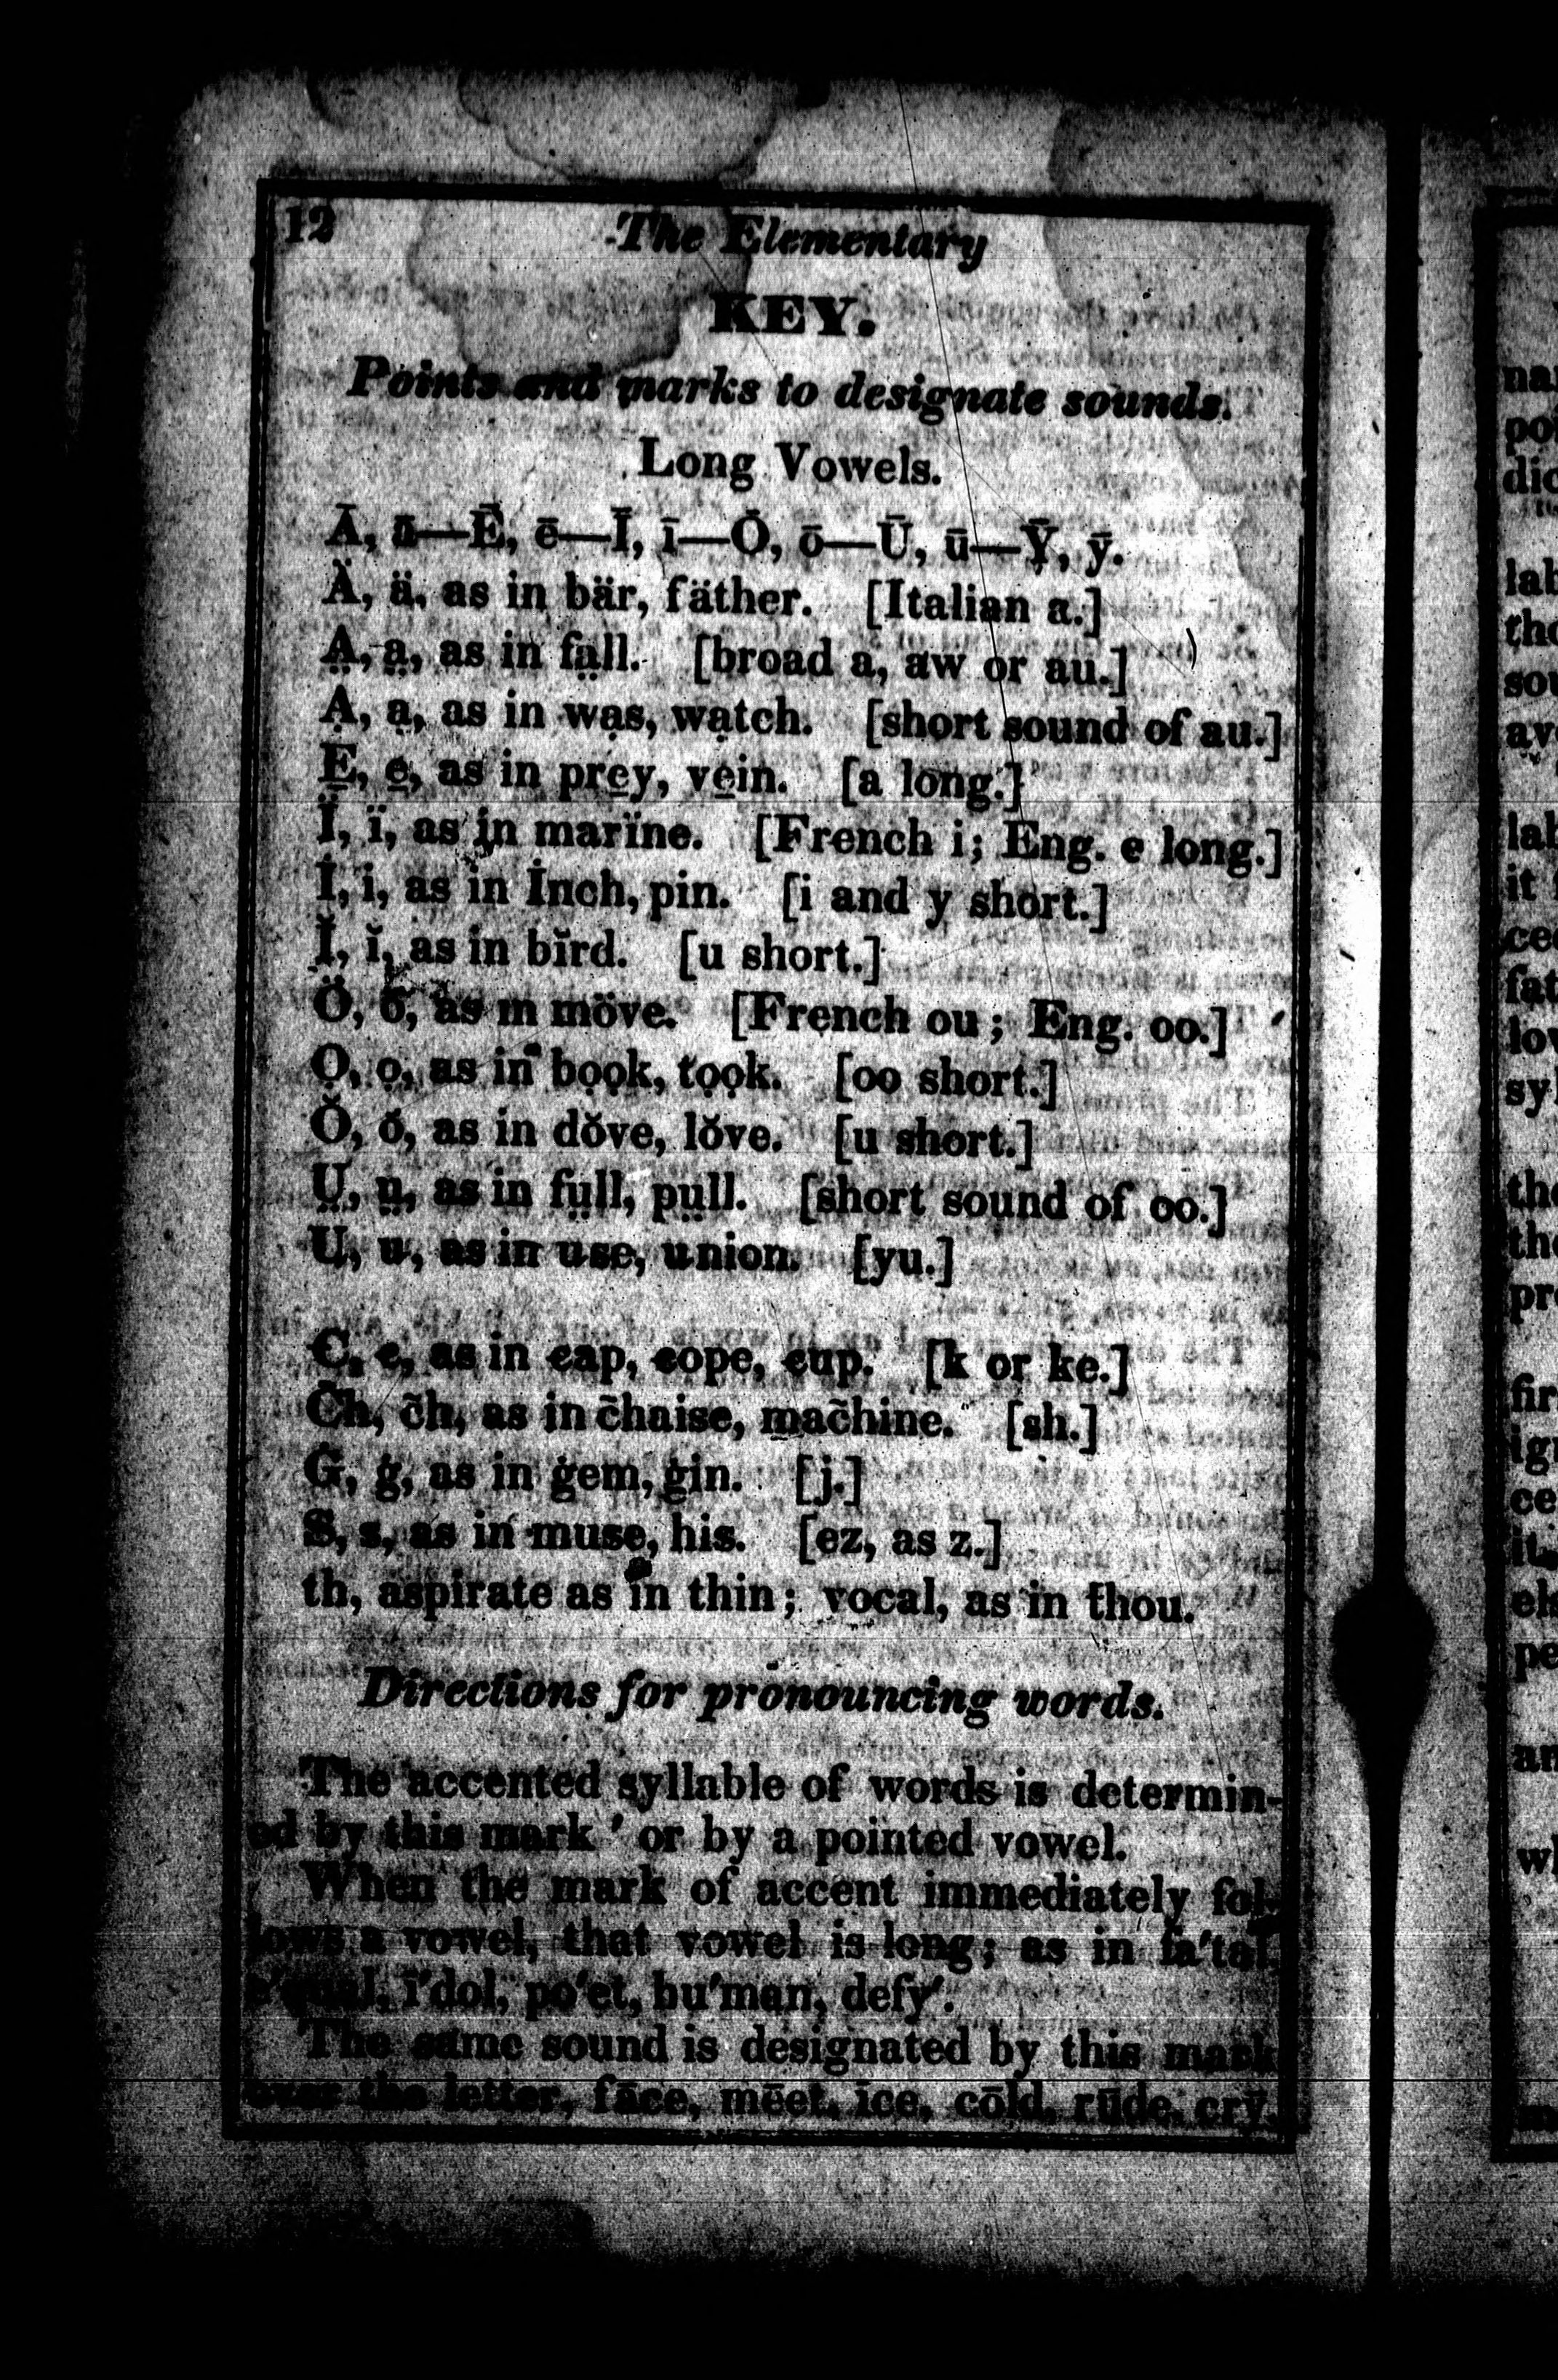 12 The Elementary
KEY.
Points and marks to designate sounds.
Long Vowels.
Ā, ā—Ē, ē—Ī, ī—Ō, ō—Ū, ū—Ȳ, ȳ.
Ä, ä, as in bär, fäther. [Italian a.]
A̤, a̤, as in fa̤ll. [broad a, aw or au.]
Ạ, ạ, as in wạs, wạtch. [short sound of au.]
E̱, e̱, as in pre̱y, ve̱in. [a long.]
Ï, ï, as in marïne. [French i; Eng. e long.]
İ, i, as in İnch, pin. [i and y short.]
Ĭ, ĭ, as in bĭrd. [u short.]
Ö, ö, as in möve. [French ou; Eng. oo.]
Ọ, ọ, as in bọọk, tọọk. [oo short.]
Ŏ, ŏ, as in dŏve, lŏve. [u short.]
Ṳ, ṳ, as in fṳll, pṳll. [short sound of oo.]
U, u, as in use, union. [yu.]
C, c, as in cap, cope, cup. [k or ke.]
C̃h, c̃h, as in c̃haise, mac̃hine. [sh.]
Ġ, ġ, as in ġem, ġin. [j.]
S, s, as in muse, his. [ez, as z.]
th, aspirate as in thin; vocal, as in thou.
Directions for pronouncing words.
The accented syllable of words is determin-
ed by this mark ' or by a pointed vowel.
When the mark of accent immediately fol-
lows a vowel, that vowel is long; as in fa'tal,
e'qual, i'dol, po'et, hu'man, defy'.
The same sound is designated by this mark
over the letter, fāce, mēet, īce, cōld, rūde, crȳ.